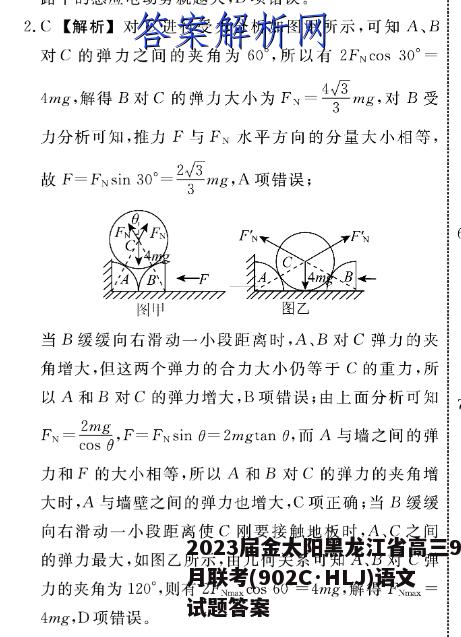 2. C 【解析】对
示,可知 A、B
答案解析网
对 C 的弹力之间的夹角为 60°,所以有 2F_N cos 30°=
4mg,解得 B 对 C 的弹力大小为 F_N=4√3/3 mg,对 B 受
力分析可知,推力 F 与 F_N 水平方向的分量大小相等,
故 F=F_N sin 30°=2√3/3 mg,A 项错误;
θ
F_N F_N
C
4mg
A B F
图甲
F'_N F'_N
C
A 4mg B
图乙
当 B 缓缓向右滑动一小段距离时,A、B 对 C 弹力的夹
角增大,但这两个弹力的合力大小仍等于 C 的重力,所
以 A 和 B 对 C 的弹力增大,B 项错误;由上面分析可知
F_N=2mg/cos θ,F=F_N sin θ=2mgtan θ,而 A 与墙之间的弹
力和 F 的大小相等,所以 A 和 B 对 C 的弹力的夹角增
大时,A 与墙壁之间的弹力也增大,C 项正确;当 B 缓缓
向右滑动一小段距离使 C 刚要接触地板时,A、C 之间
的弹力最大,如图乙所示,由几何关系可知 A、B 对 C 弹
力的夹角为 120°,则有 2F_Nmax cos 60°=4mg,解得 F_Nmax=
4mg,D 项错误。
2023届金太阳黑龙江省高三9
月联考(902C·HLJ)语文
试题答案